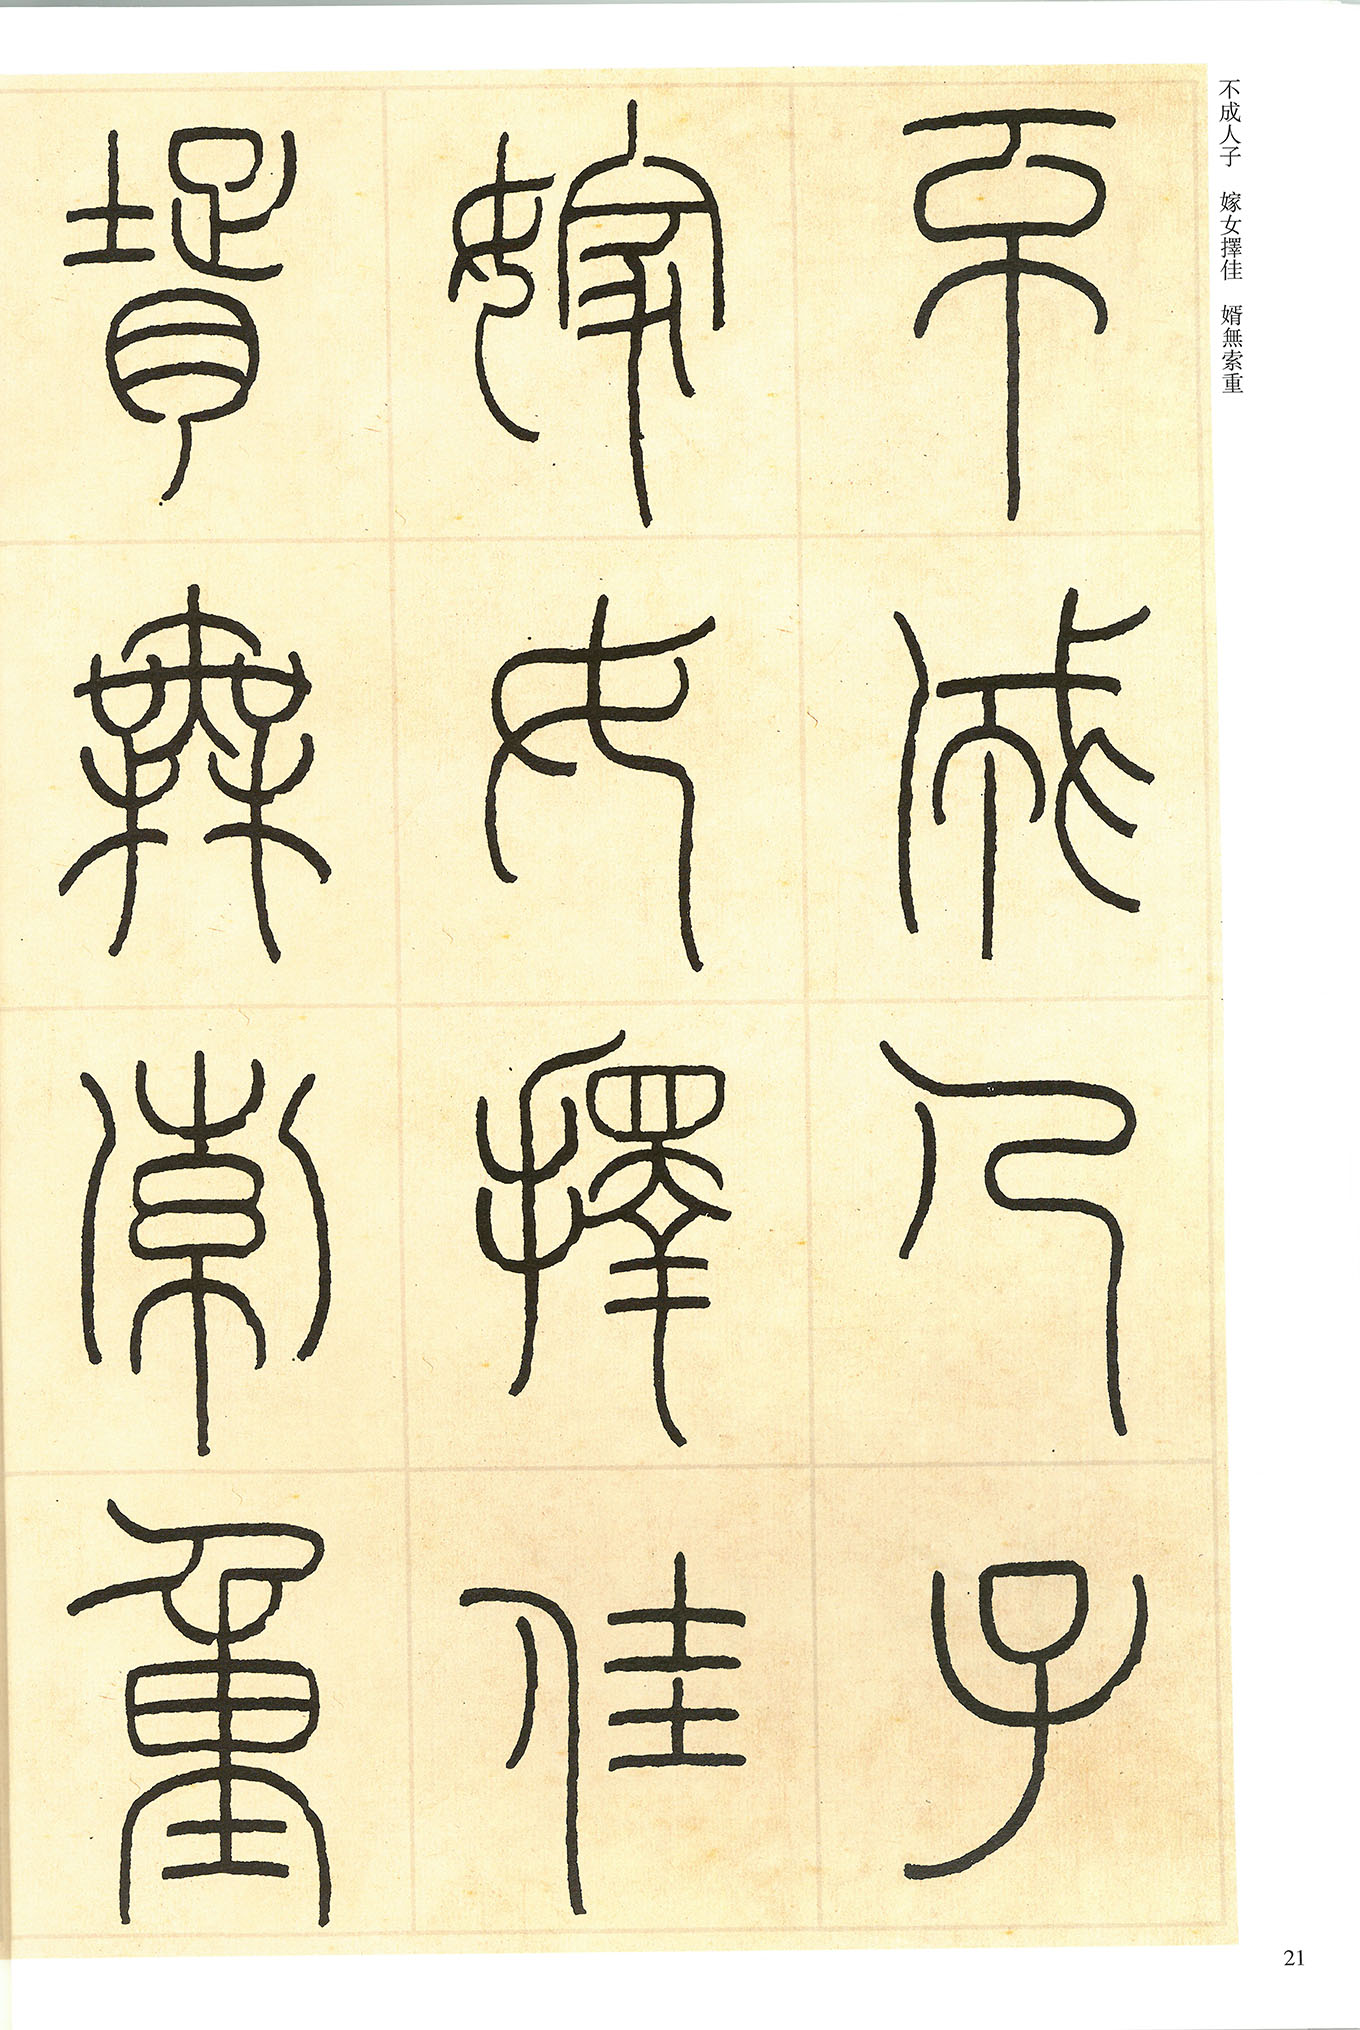 不成人子　嫁女擇佳　婿無索重
不成人子
嫁女擇佳
壻無索重
21